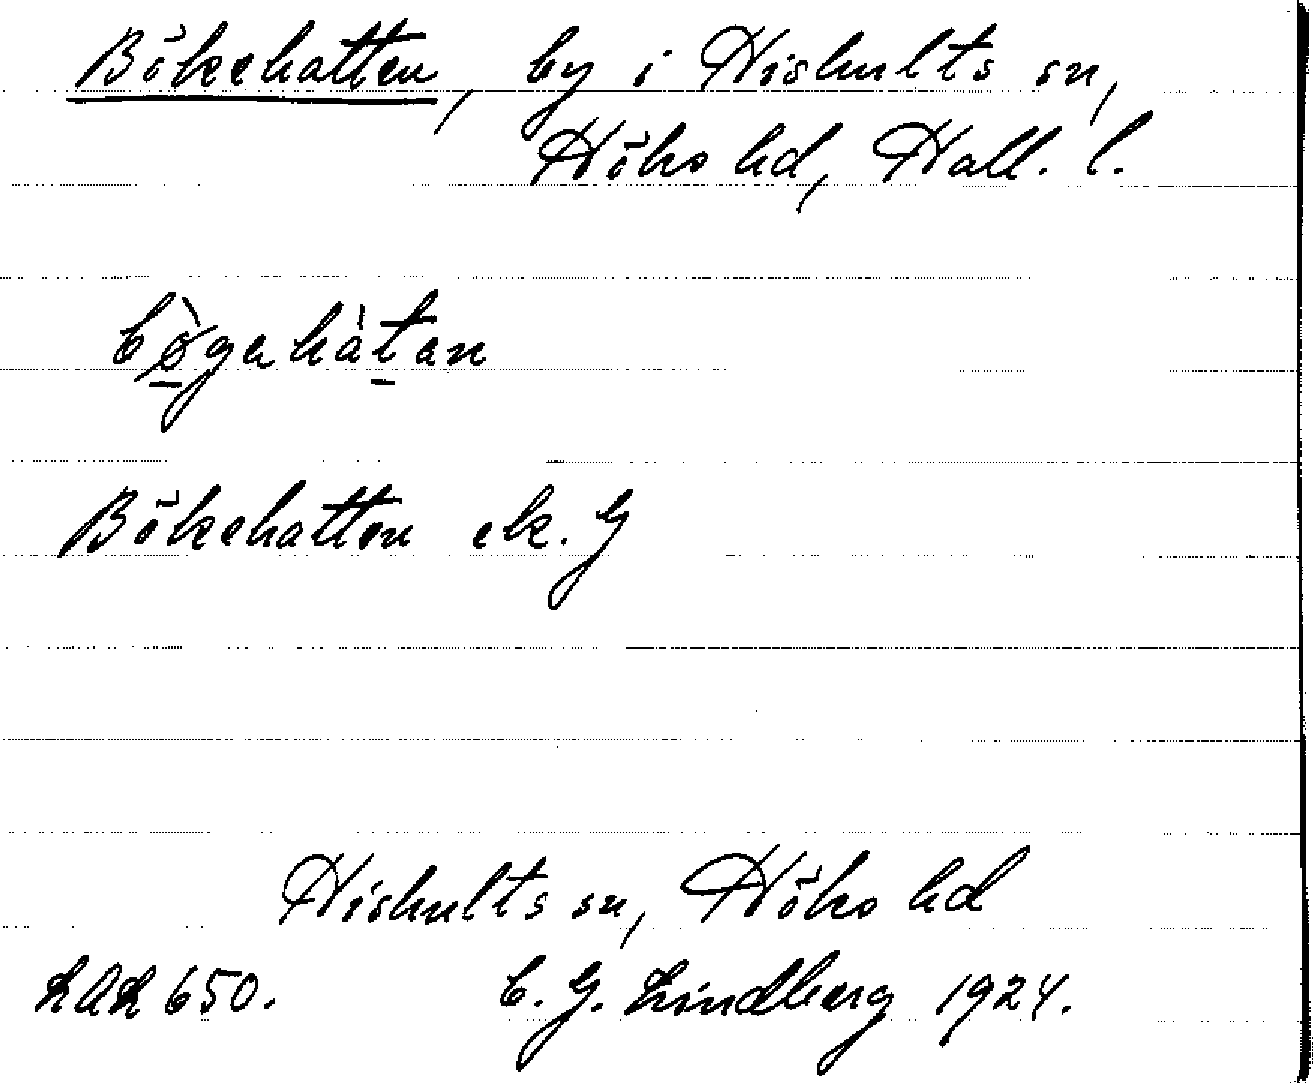 Bökehatten, by i Hishults sn,
Höks hd, Hall. l.
bø̀gahàtan
Bökehatten ek. G
Hishults sn, Höks hd
LAL 650. C. G. Lindberg 1924.